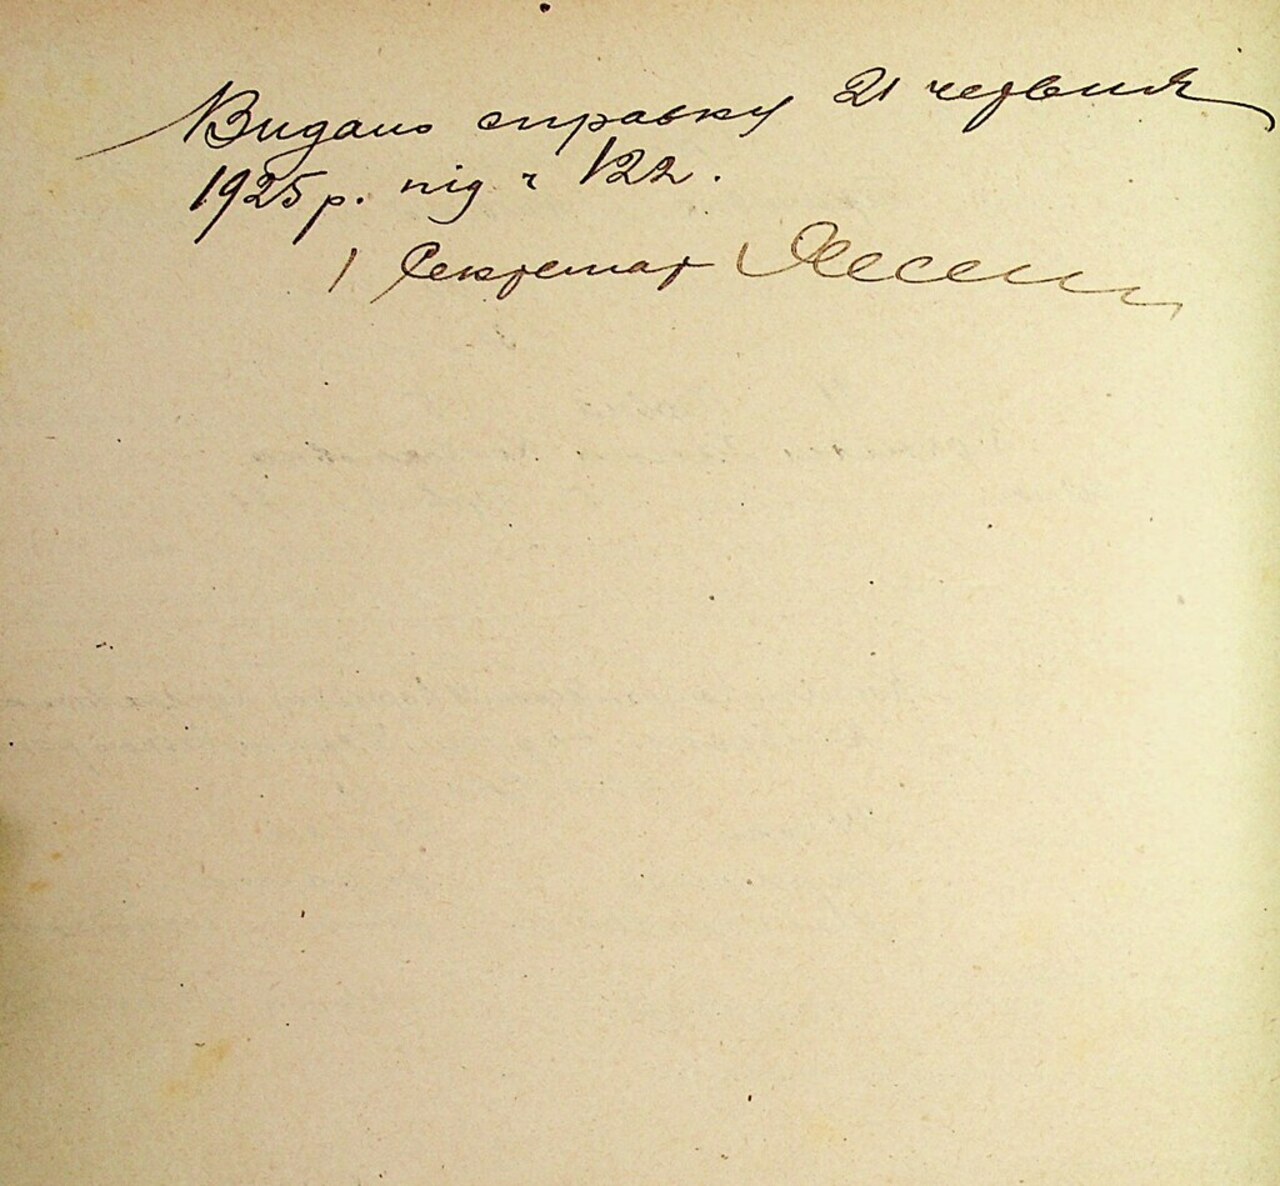 Видано справку 21 червня
1925 р. під ч 122.
Секретар